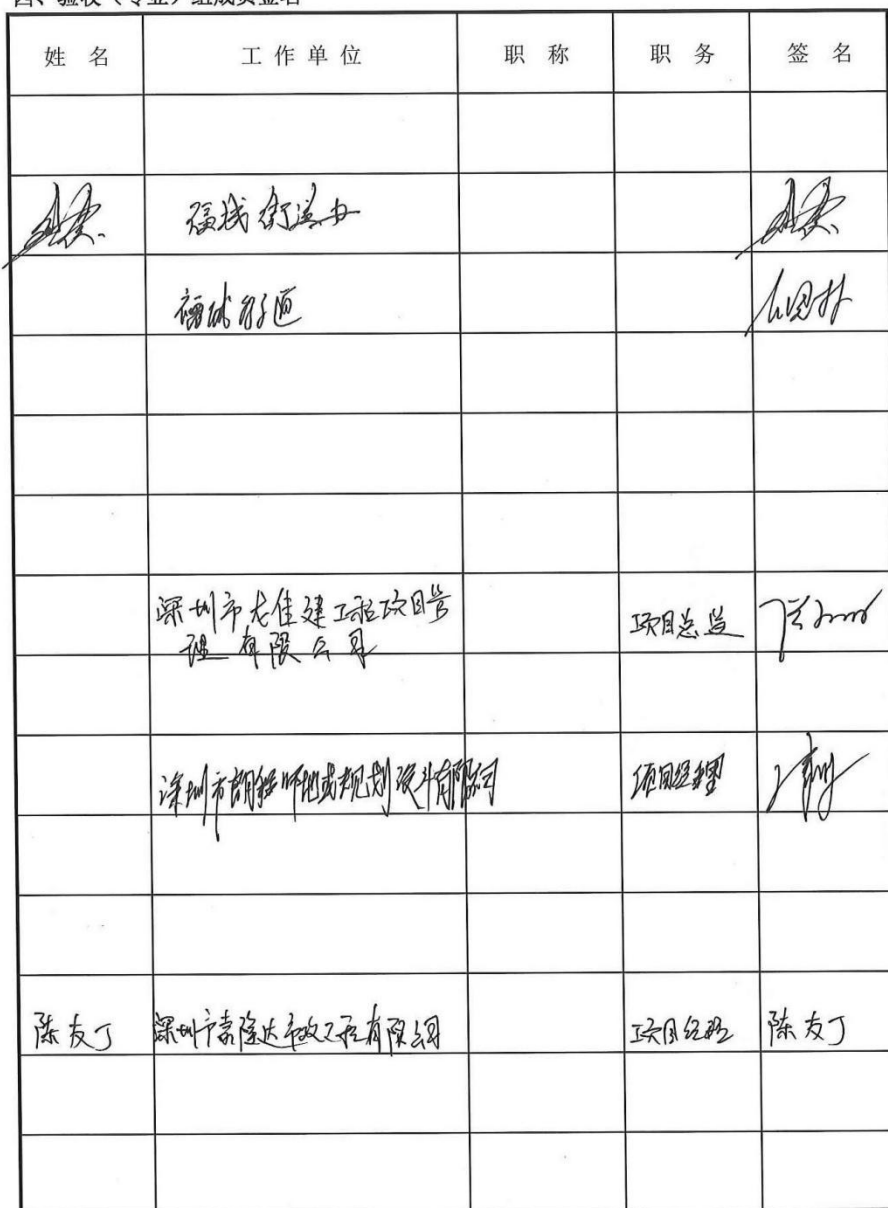 四、验收（专业）组成员签名
姓 名 工 作 单 位 职 称 职 务 签 名
福城街道办
福城街道
深圳市龙佳建工程项目管 项目总监
理有限公司
深圳市 规划设计有限公司 项目经理
陈友丁 深圳市嘉隆达市政工程有限公司 项目经理 陈友丁